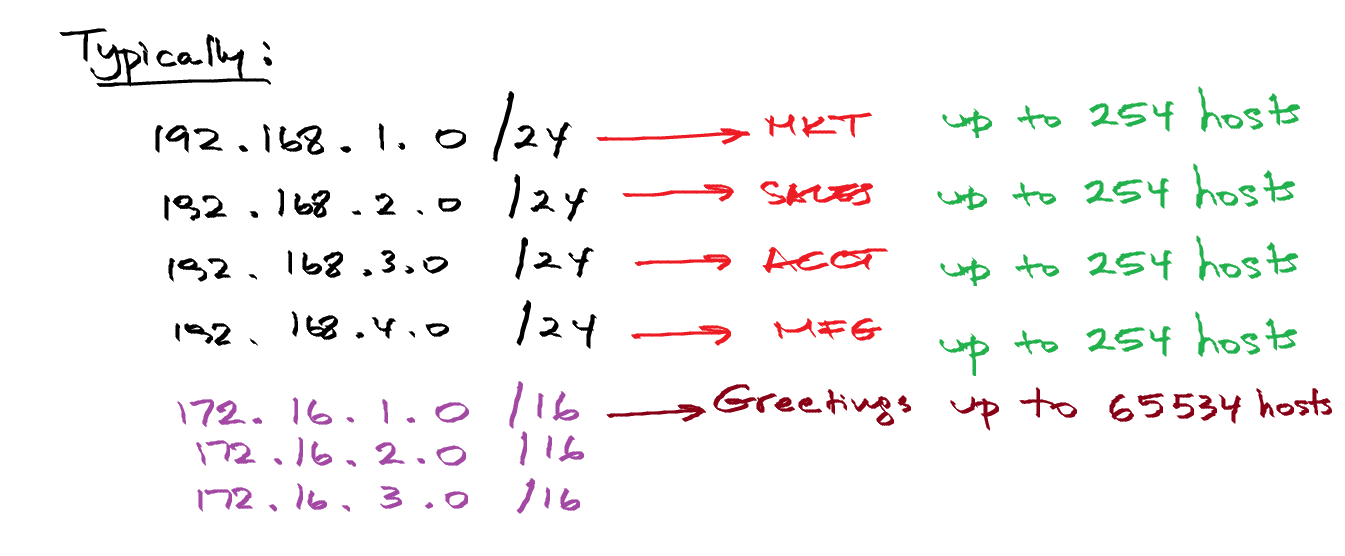 Typically:
192.168.1.0 /24 → MKT up to 254 hosts
192.168.2.0 /24 → SALES up to 254 hosts
192.168.3.0 /24 → ACCT up to 254 hosts
192.168.4.0 /24 → MFG up to 254 hosts
172.16.1.0 /16 → Greetings up to 65534 hosts
172.16.2.0 /16
172.16.3.0 /16